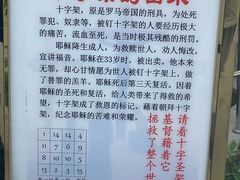 十字架，原是罗马帝国的刑具，为处死
罪犯、奴隶等，被钉十字架的人要经历极大
的痛苦，流血至死，是当时极其残酷的刑罚。
耶稣降生成人，为救赎世人，劝人悔改，
宣讲福音。耶稣在33岁时，被出卖，他本来
无罪，却心甘情愿为世人被钉十字架上，做
了替罪的羔羊。耶稣死后第三天复活，因着
耶稣的圣死和复活，给人类带来了得救的希
望，十字架成了救恩的标记。藉着朝拜十字
架，纪念耶稣的苦难和荣耀。
1 14 14 4
11 7 6 9
8 10 10 5
13 2 3 15
请看十字圣架
基督藉着它
拯救了整个世